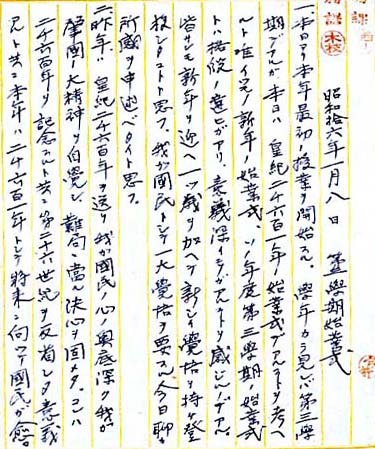 昭和十六年一月八日　第三學期始業式
一、本日ヨリ本年最初ノ授業ヲ開始スル。學年カラ見レバ第三學
期デアルガ本日ハ皇紀二千六百一年ノ始業式デアルコトヲ考ヘ
ルト唯例元ノ新年ノ始業式、ソノ年度第三學期ノ始業式
トハ格段ノ違ヒガアリ、意義深イモノガアルコトヲ感ジルノデアル。
皆サンモ新年ヲ迎ヘ一ツ歳ヲ加ヘテ新シイ覺悟ヲ持ツテ登
校シタコトト思フ。我ガ國民トシテ一大覺悟ヲ要スル今日聊カ
所感ヲ申述ベタイト思フ。
二、昨年ハ皇紀二千六百年ヲ送リ我ガ國民ノ心ノ奥底深ク我ガ
肇國ノ大精神ヲ自覺シ、難局ニ當ル決心ヲ固メタ。コレハ
二千六百年ヲ記念スルト共ニ第二十六世紀ヲ反省シタ意義
アルト共ニ本年ハ二千六百一年トシテ將來ニ向ツテ國民ガ愈